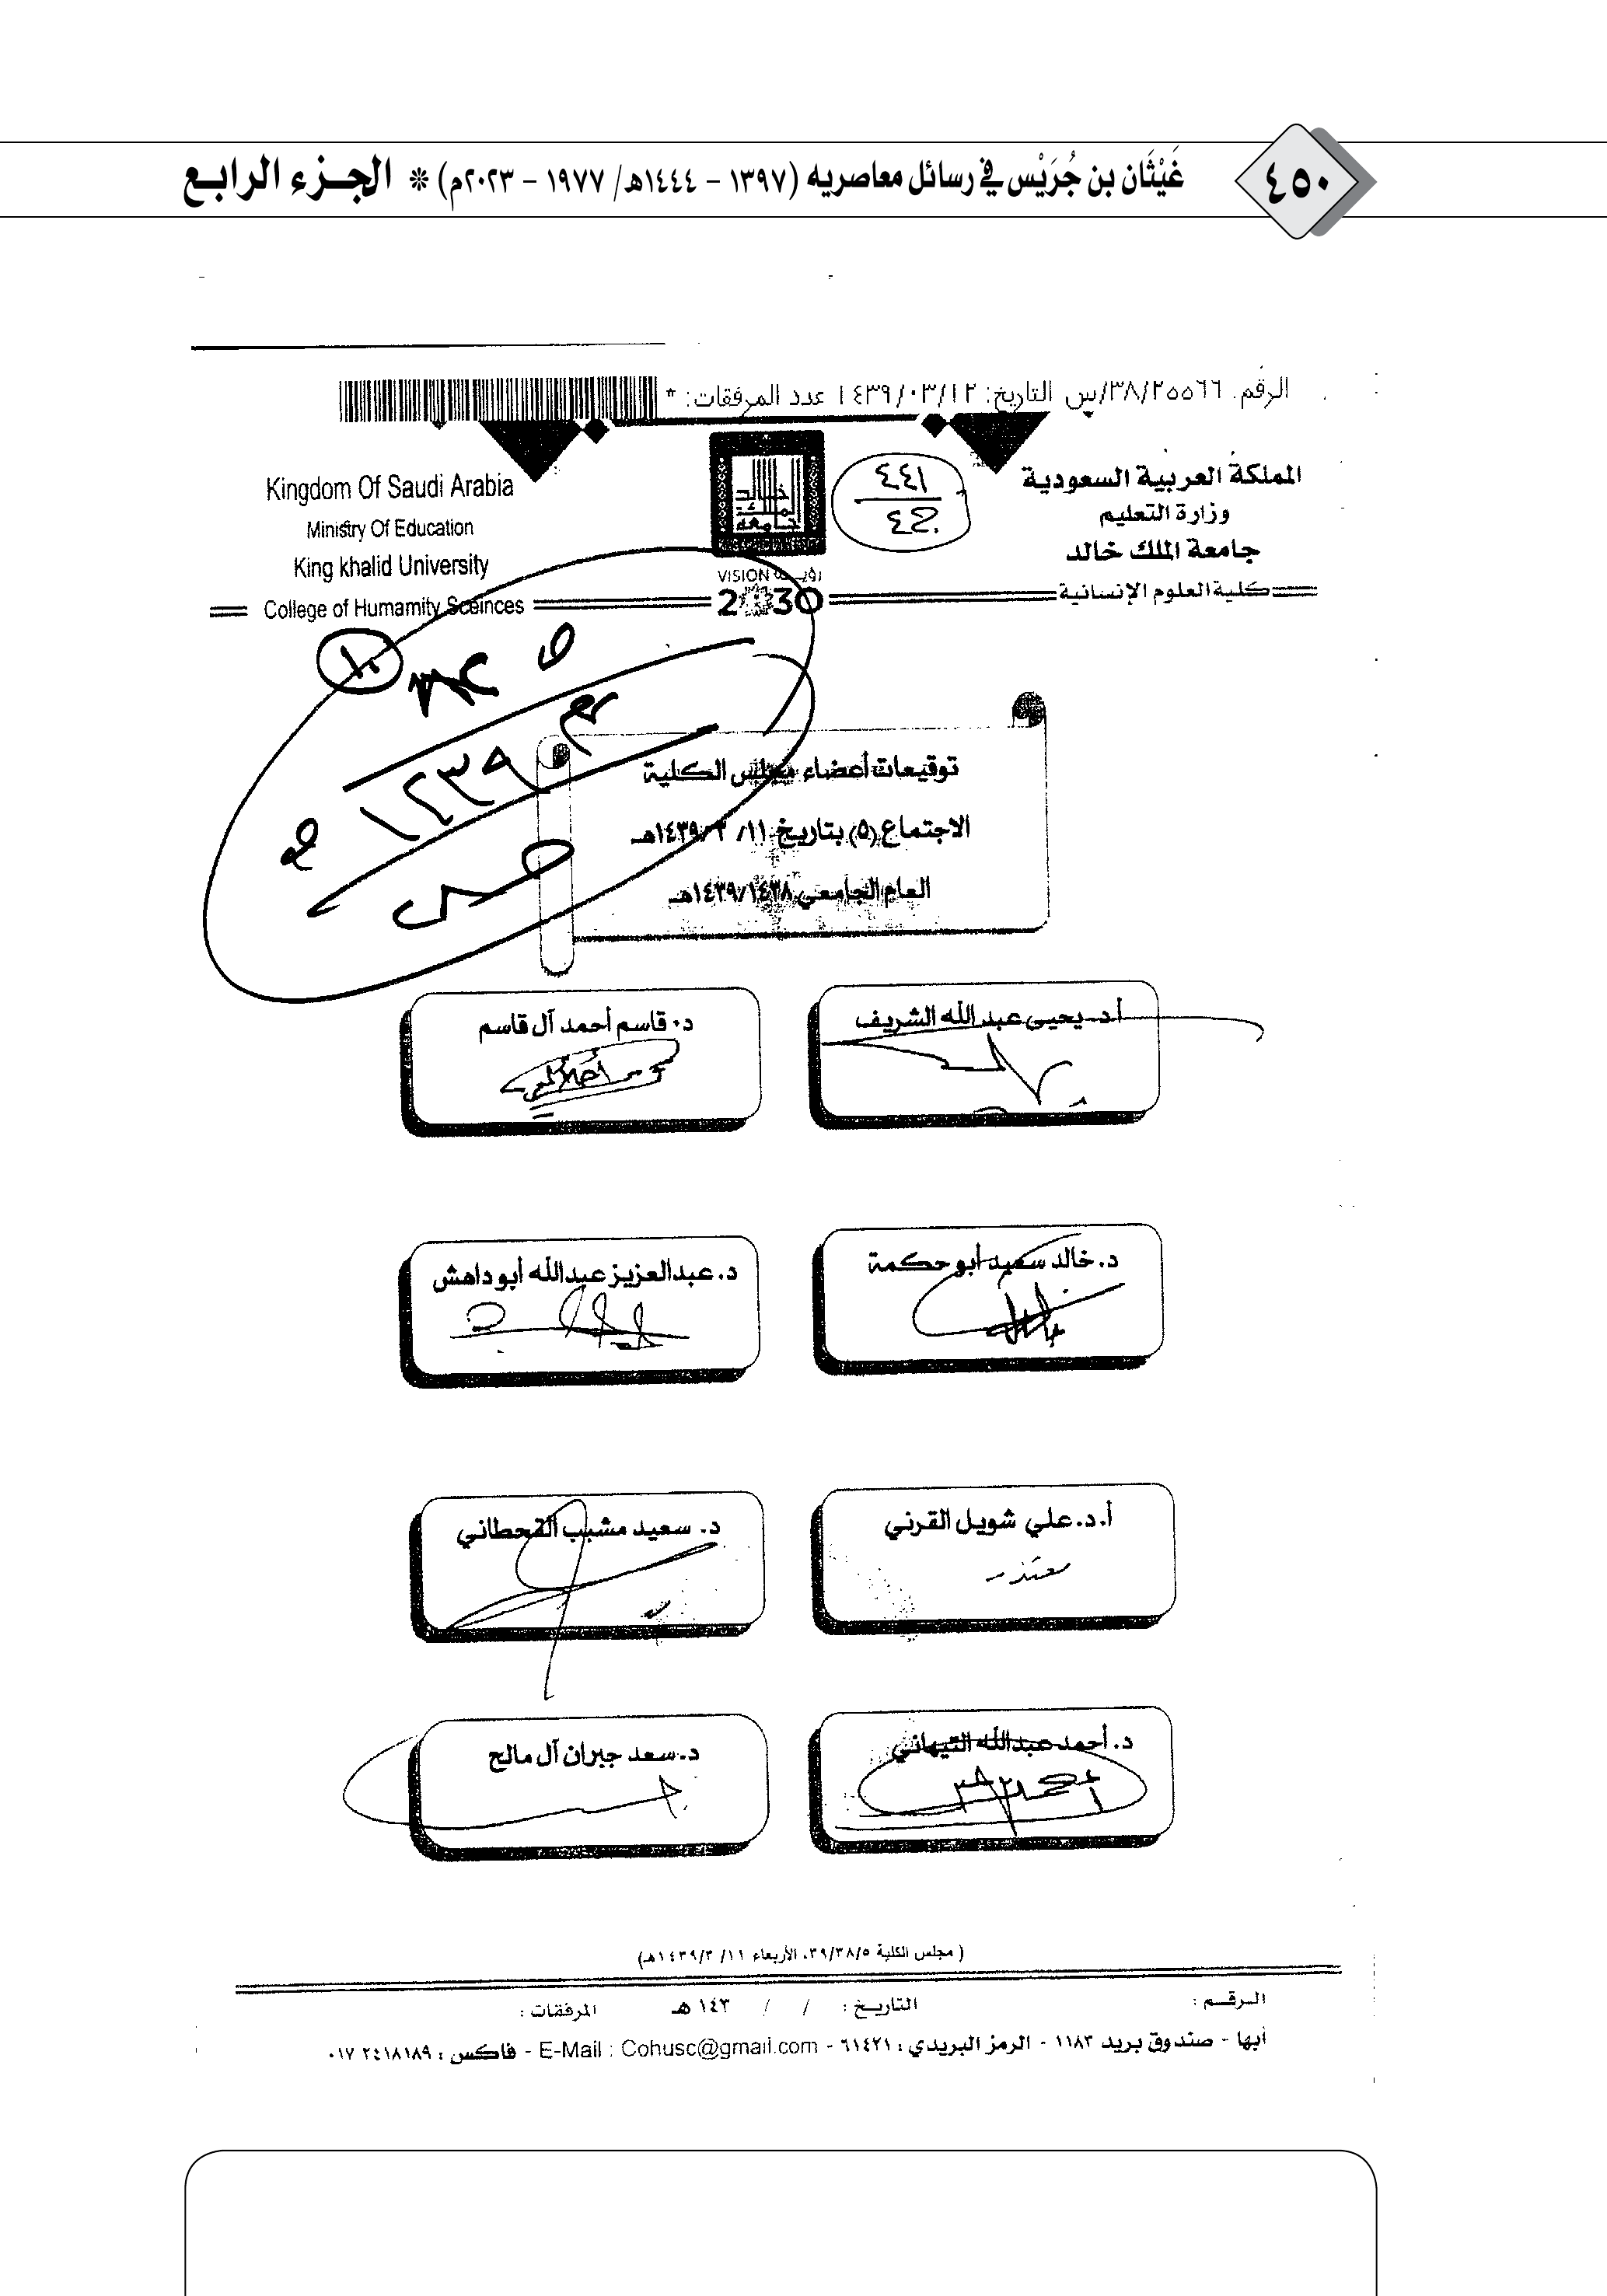 ٤٥٠
غَيْثَان بن جُرَيْس في رسائل معاصريه (١٣٩٧ – ١٤٤٤هـ/ ١٩٧٧ – ٢٠٢٣م) * الجـزء الرابـع
الرقم: ٣٨/٢٥٥٦٦/س التاريخ: ١٤٣٩/٠٣/١٢ عدد المرفقات: *
المملكة العربية السعودية
وزارة التعليم
جامعة الملك خالد
كلية العلوم الإنسانية
٤٤١
VISION رؤيـــة
2030
Kingdom Of Saudi Arabia
Ministry Of Education
King khalid University
College of Humamity Sceinces
١٠
توقيعات أعضاء مجلس الكلية
الاجتماع (٥) بتاريخ ١١/ ٣/ ١٤٣٩هـ
العام الجامعي ١٤٣٩/١٤٣٨هـ
أ.د. يحيى عبد الله الشريف
د. قاسم أحمد آل قاسم
د. خالد سعيد أبو حكمة
د. عبدالعزيز عبدالله أبو داهش
أ.د. علي شويل القرني
معتذر
د. سعيد مشبب القحطاني
د. أحمد عبدالله التيهاني
د. سعد جبران آل مالح
( مجلس الكلية ٣٩/٣٨/٥، الأربعاء ١١/ ٣/ ١٤٣٩هـ)
الـرقـــم : التاريــخ : / / ١٤٣ هـ المرفقات :
أبها - صندوق بريد ١١٨٣ - الرمز البريدي : ٦١٤٢١ - E-Mail : Cohusc@gmail.com - فاكس : ٠١٧ ٢٤١٨١٨٩